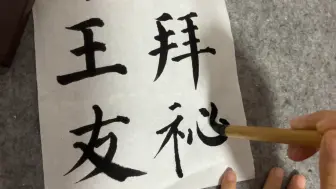 拜祕
王友